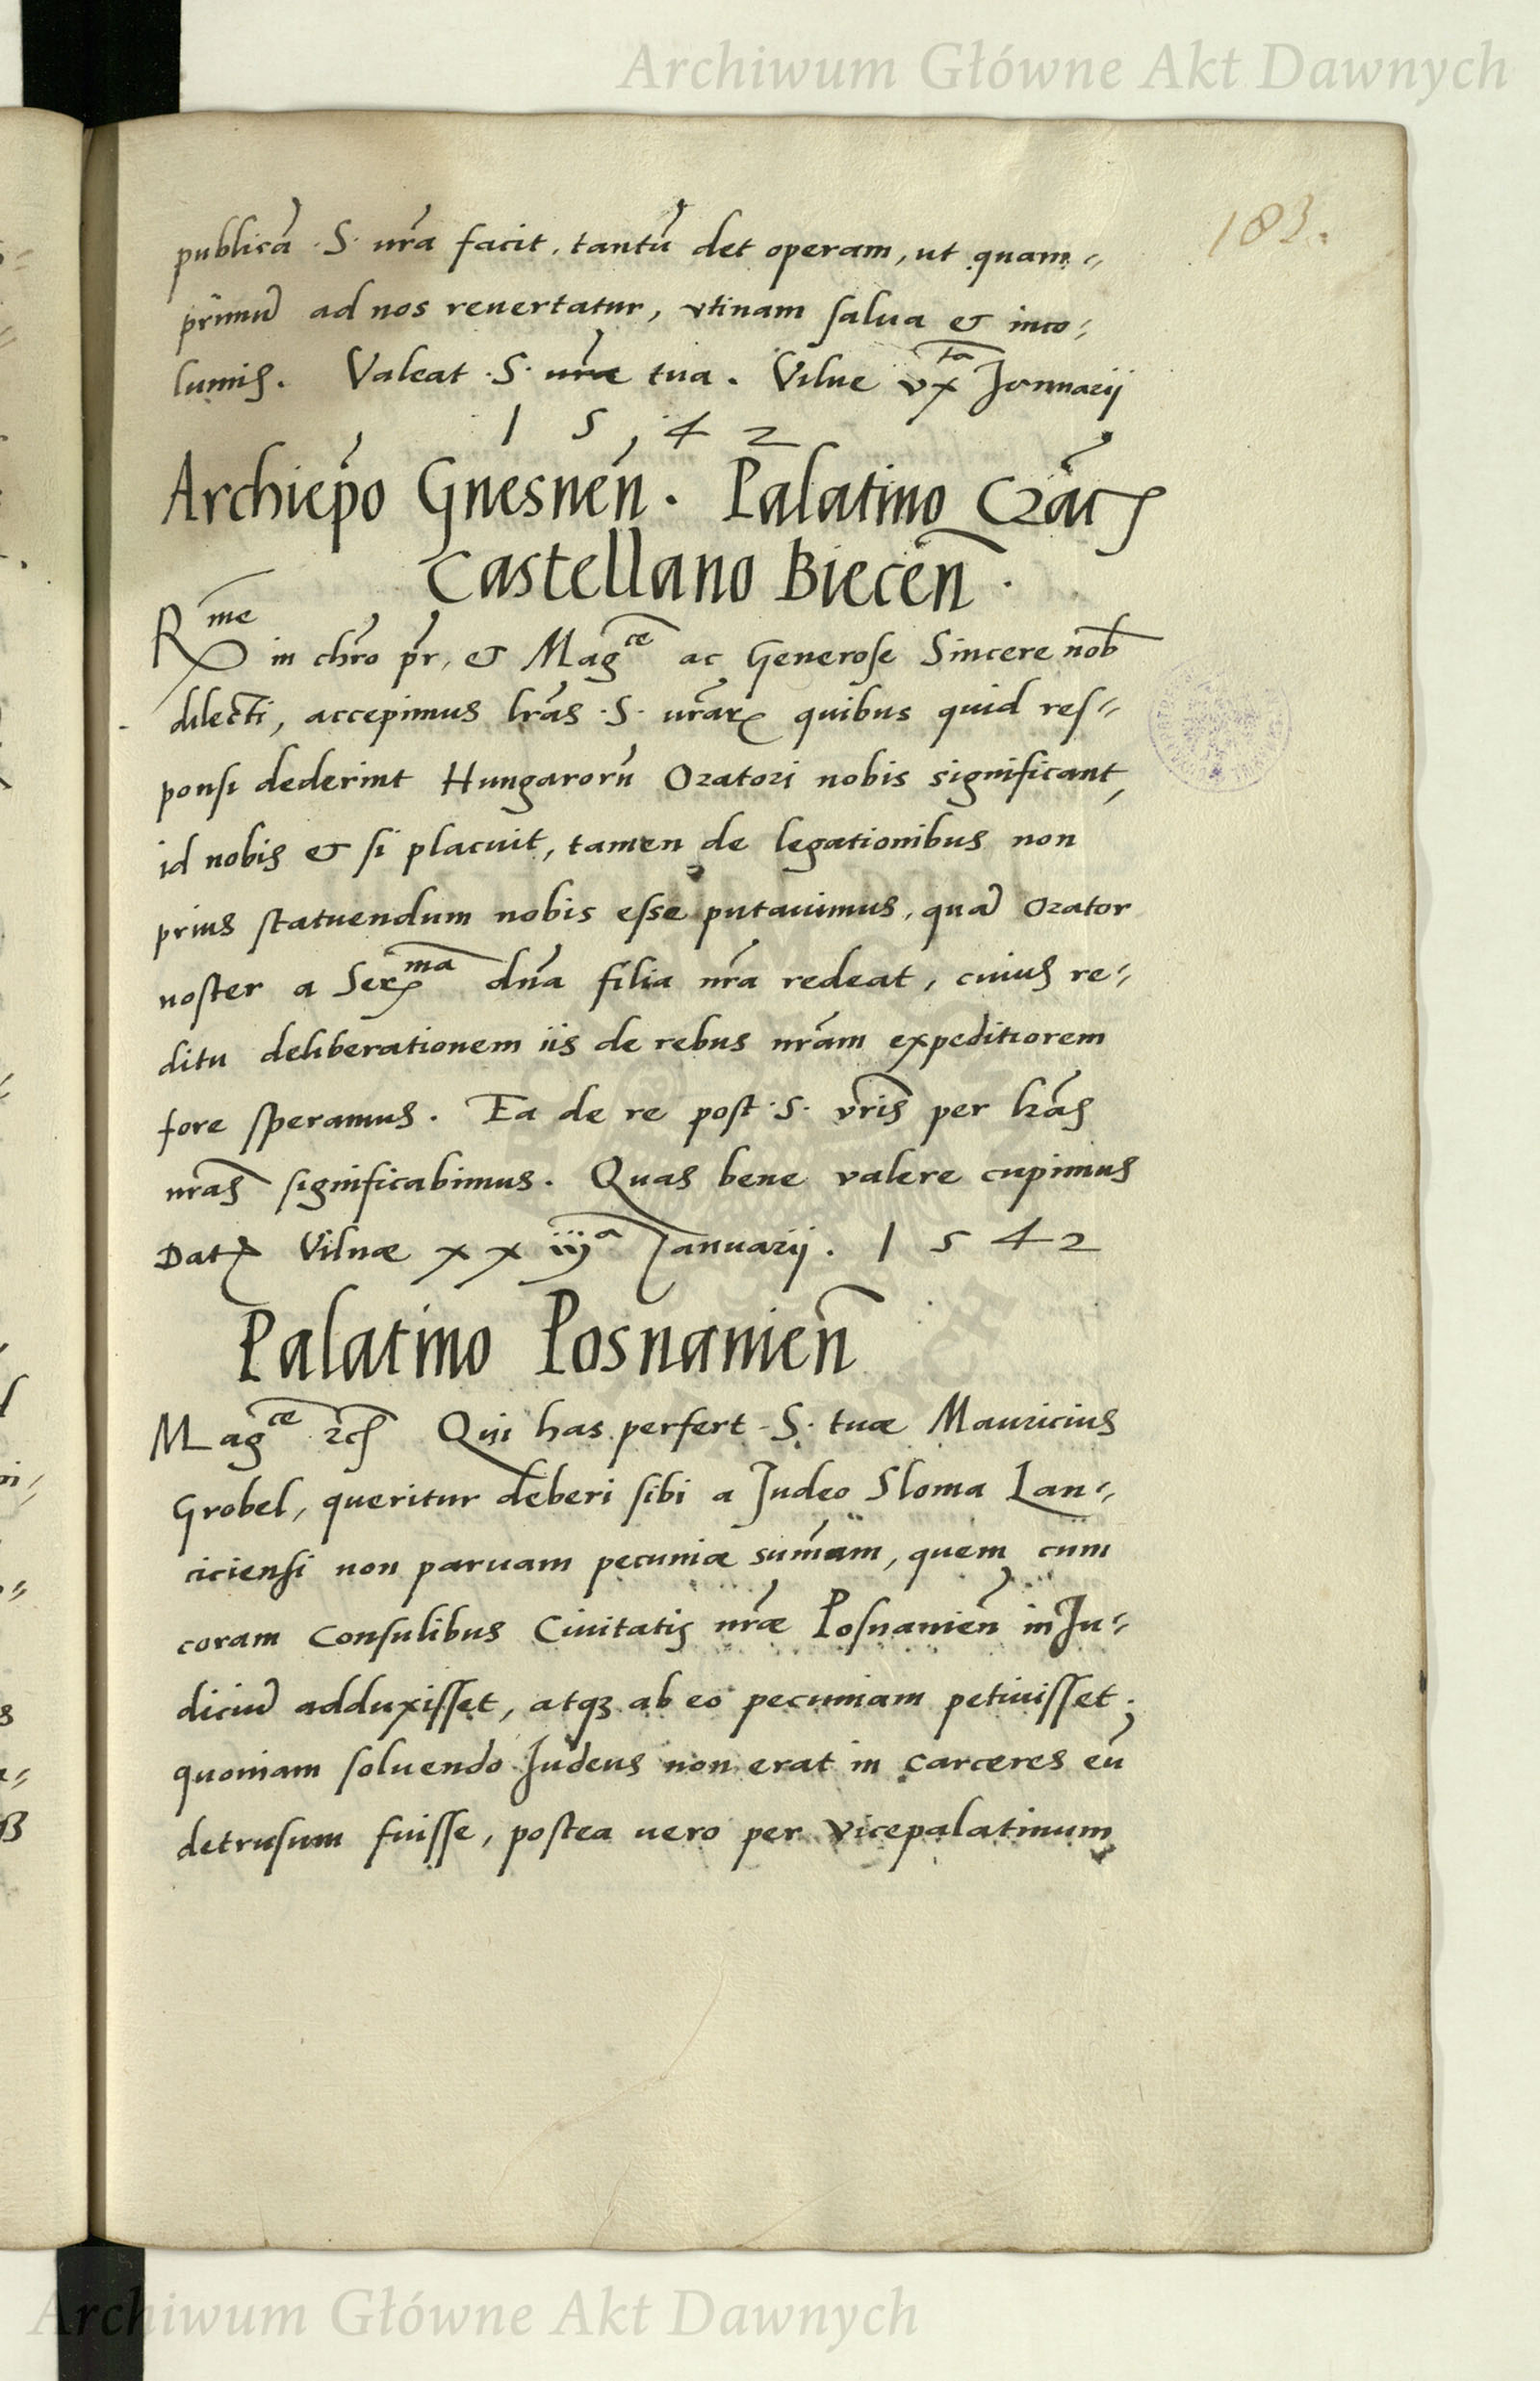 Archiwum Główne Akt Dawnych
183.
publicā S. ur̃a facit, tantũ det operam, ut quam=
primũ ad nos reuertatur, vtinam salua & inco=
lumis. Valeat S. ur̃a tua. Vilne Januarij
1542
Archiep̃o Gnesneñ. Palatino Crãc
Castellano Bieceñ.
Rme in chr̃o pr̃, & Magce ac Generose Sincere nob̃
dilecti, accepimus lr̃as S. ur̃arꝝ quibus quid res=
ponsi dederint Hungarorũ Oratori nobis significant,
id nobis & si placuit, tamen de legationibus non
prius statuendum nobis esse putauimus, quã Orator
noster a Serma dña filia nr̃a redeat, cuius re=
ditu deliberationem iis de rebus nr̃am expeditiorem
fore speramus. Ea de re post S. vr̃is per lr̃as
nr̃as significabimus. Quas bene valere cupimus
Datꝝ Vilnæ xxiiija Januarij. 1542
Palatino Posnanieñ
Magce rc̃ Qui has perfert S. tuæ Mauricius
Grobel, queritur deberi sibi a Judeo Sloma Lan=
ciciensi non paruam pecuniæ sum̃am, quem cum
coram Consulibus Ciuitatis nr̃æ Posnanieñ in Ju=
diciũ adduxisset, atqꝫ ab eo pecuniam petiuisset;
quoniam soluendo Judeus non erat in carceres eũ
detrusum fuisse, postea uero per Vicepalatinum
Archiwum Główne Akt Dawnych